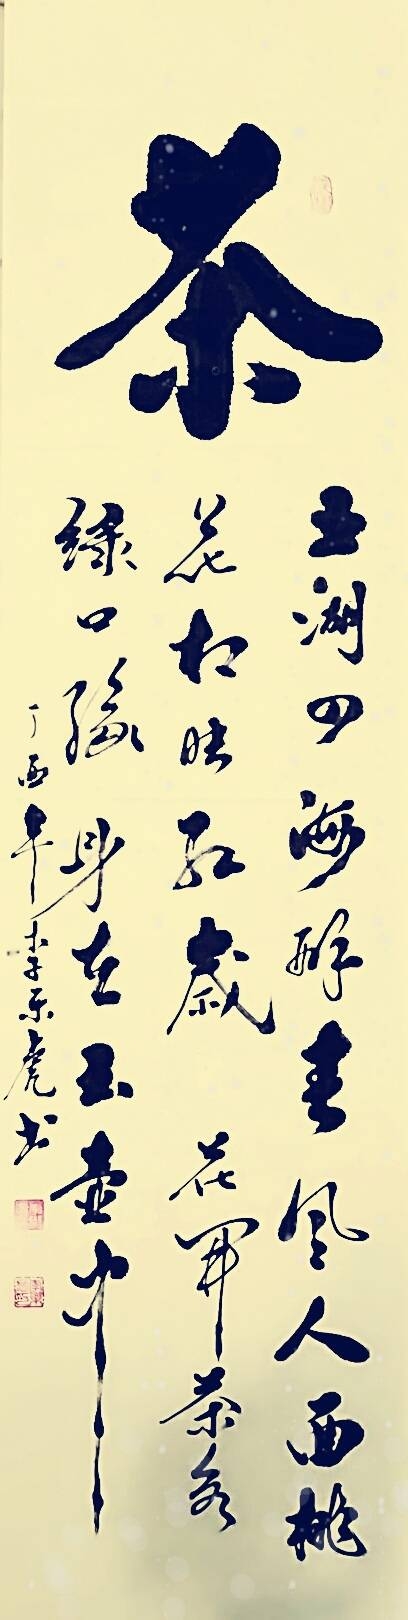 茶
五湖四海醉春风人面桃
花相映红岁岁花开茶各
绿口缘身在玉壶中
丁酉年李东虎书